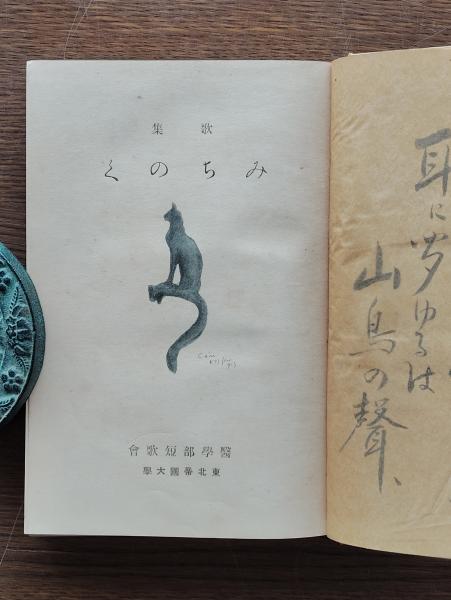 耳に聞ゆるは
山鳥の聲、
歌集
みちのく
醫學部短歌會
東北帝國大學